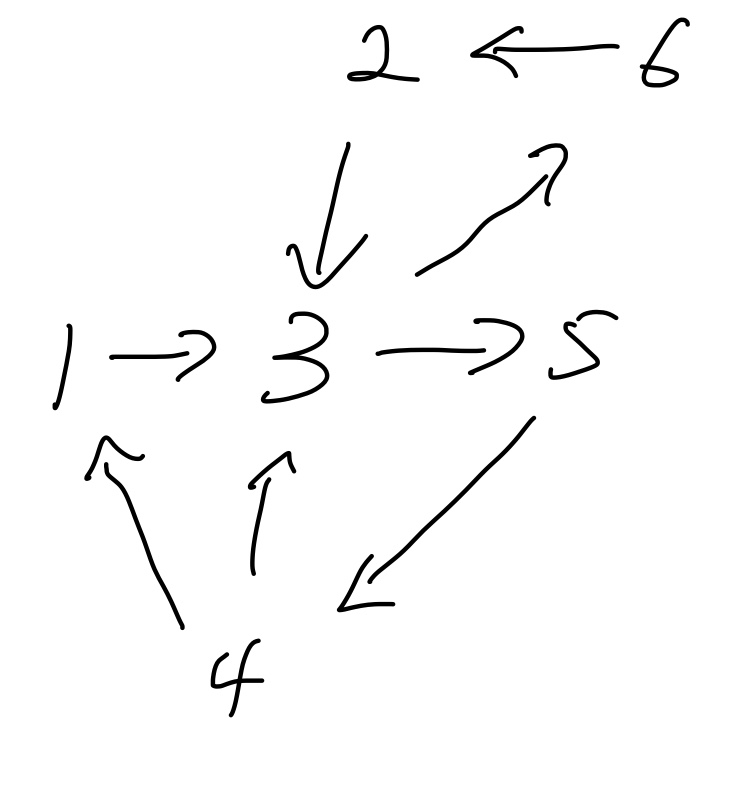 2 ← 6
1 → 3 → 5
4